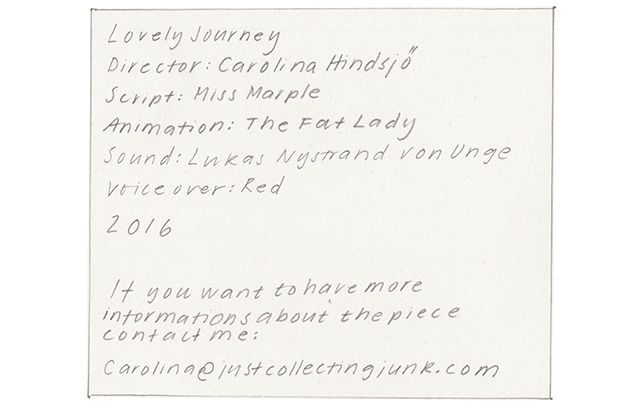 Lovely Journey
Director: Carolina Hindsjő
Script: Miss Marple
Animation: The Fat Lady
Sound: Lukas Nystrand von Unge
Voice over: Red
2016
If you want to have more
informations about the piece
contact me:
Carolina@justcollectingjunk.com